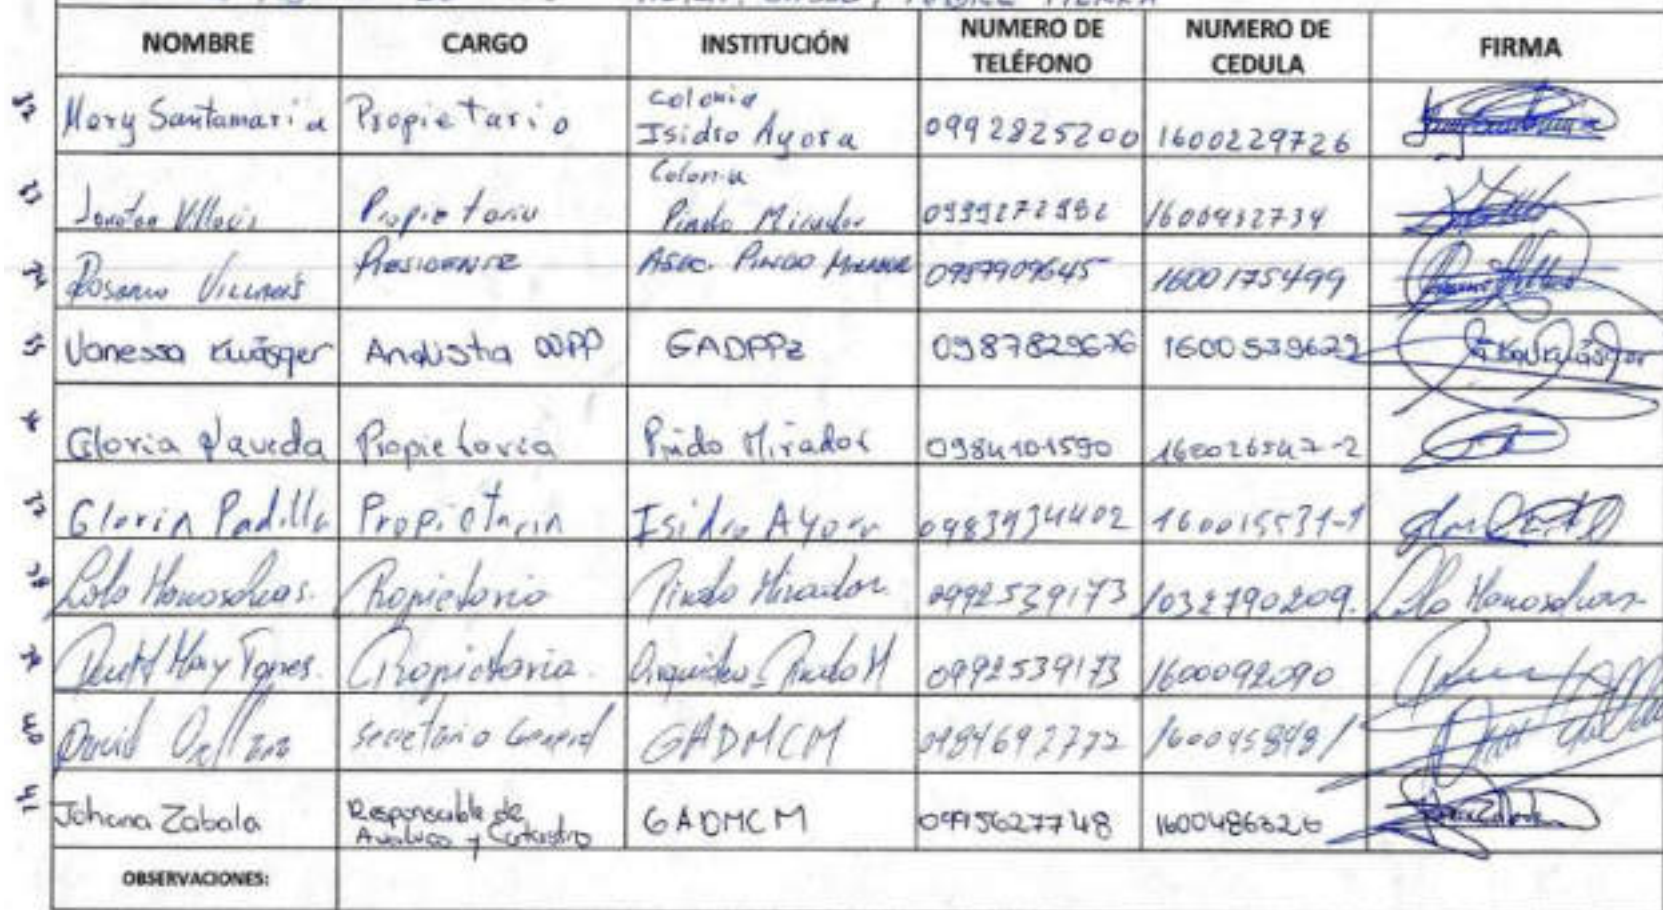 MADRE TIERRA
NOMBRE CARGO INSTITUCIÓN NUMERO DE TELÉFONO NUMERO DE CEDULA FIRMA
32 Mary Santamaria Propietario Colonia Isidro Ayora 0992825200 1600229726
33 Jonatan Villacis Propietario Colonia Pindo Mirador 1600432734
34 Rosario Villacis PRESIDENTE ASOC. PINDO MIRADOR 0987909645 1600175499
35 Vanessa Kwásger Analista OOPP GADPPz 0987829636
Gloria Propietaria Pindo Mirador 0984101590 160026547-2
37 Gloria Padilla Propietaria Isidro Ayora 0983934402 160015531-1
38 Lola Propietario Pindo Mirador 0992539173 1032790209. Lola
39 Mary Torres. Propietaria. Pindo M 0992539173 1600092090
40 David Orellana Secretario General GADMCM 0984692772 160045848/
41 Johana Zabala Responsable de Avaluos y Catastro GADMCM 0995627748 1600486326
OBSERVACIONES: